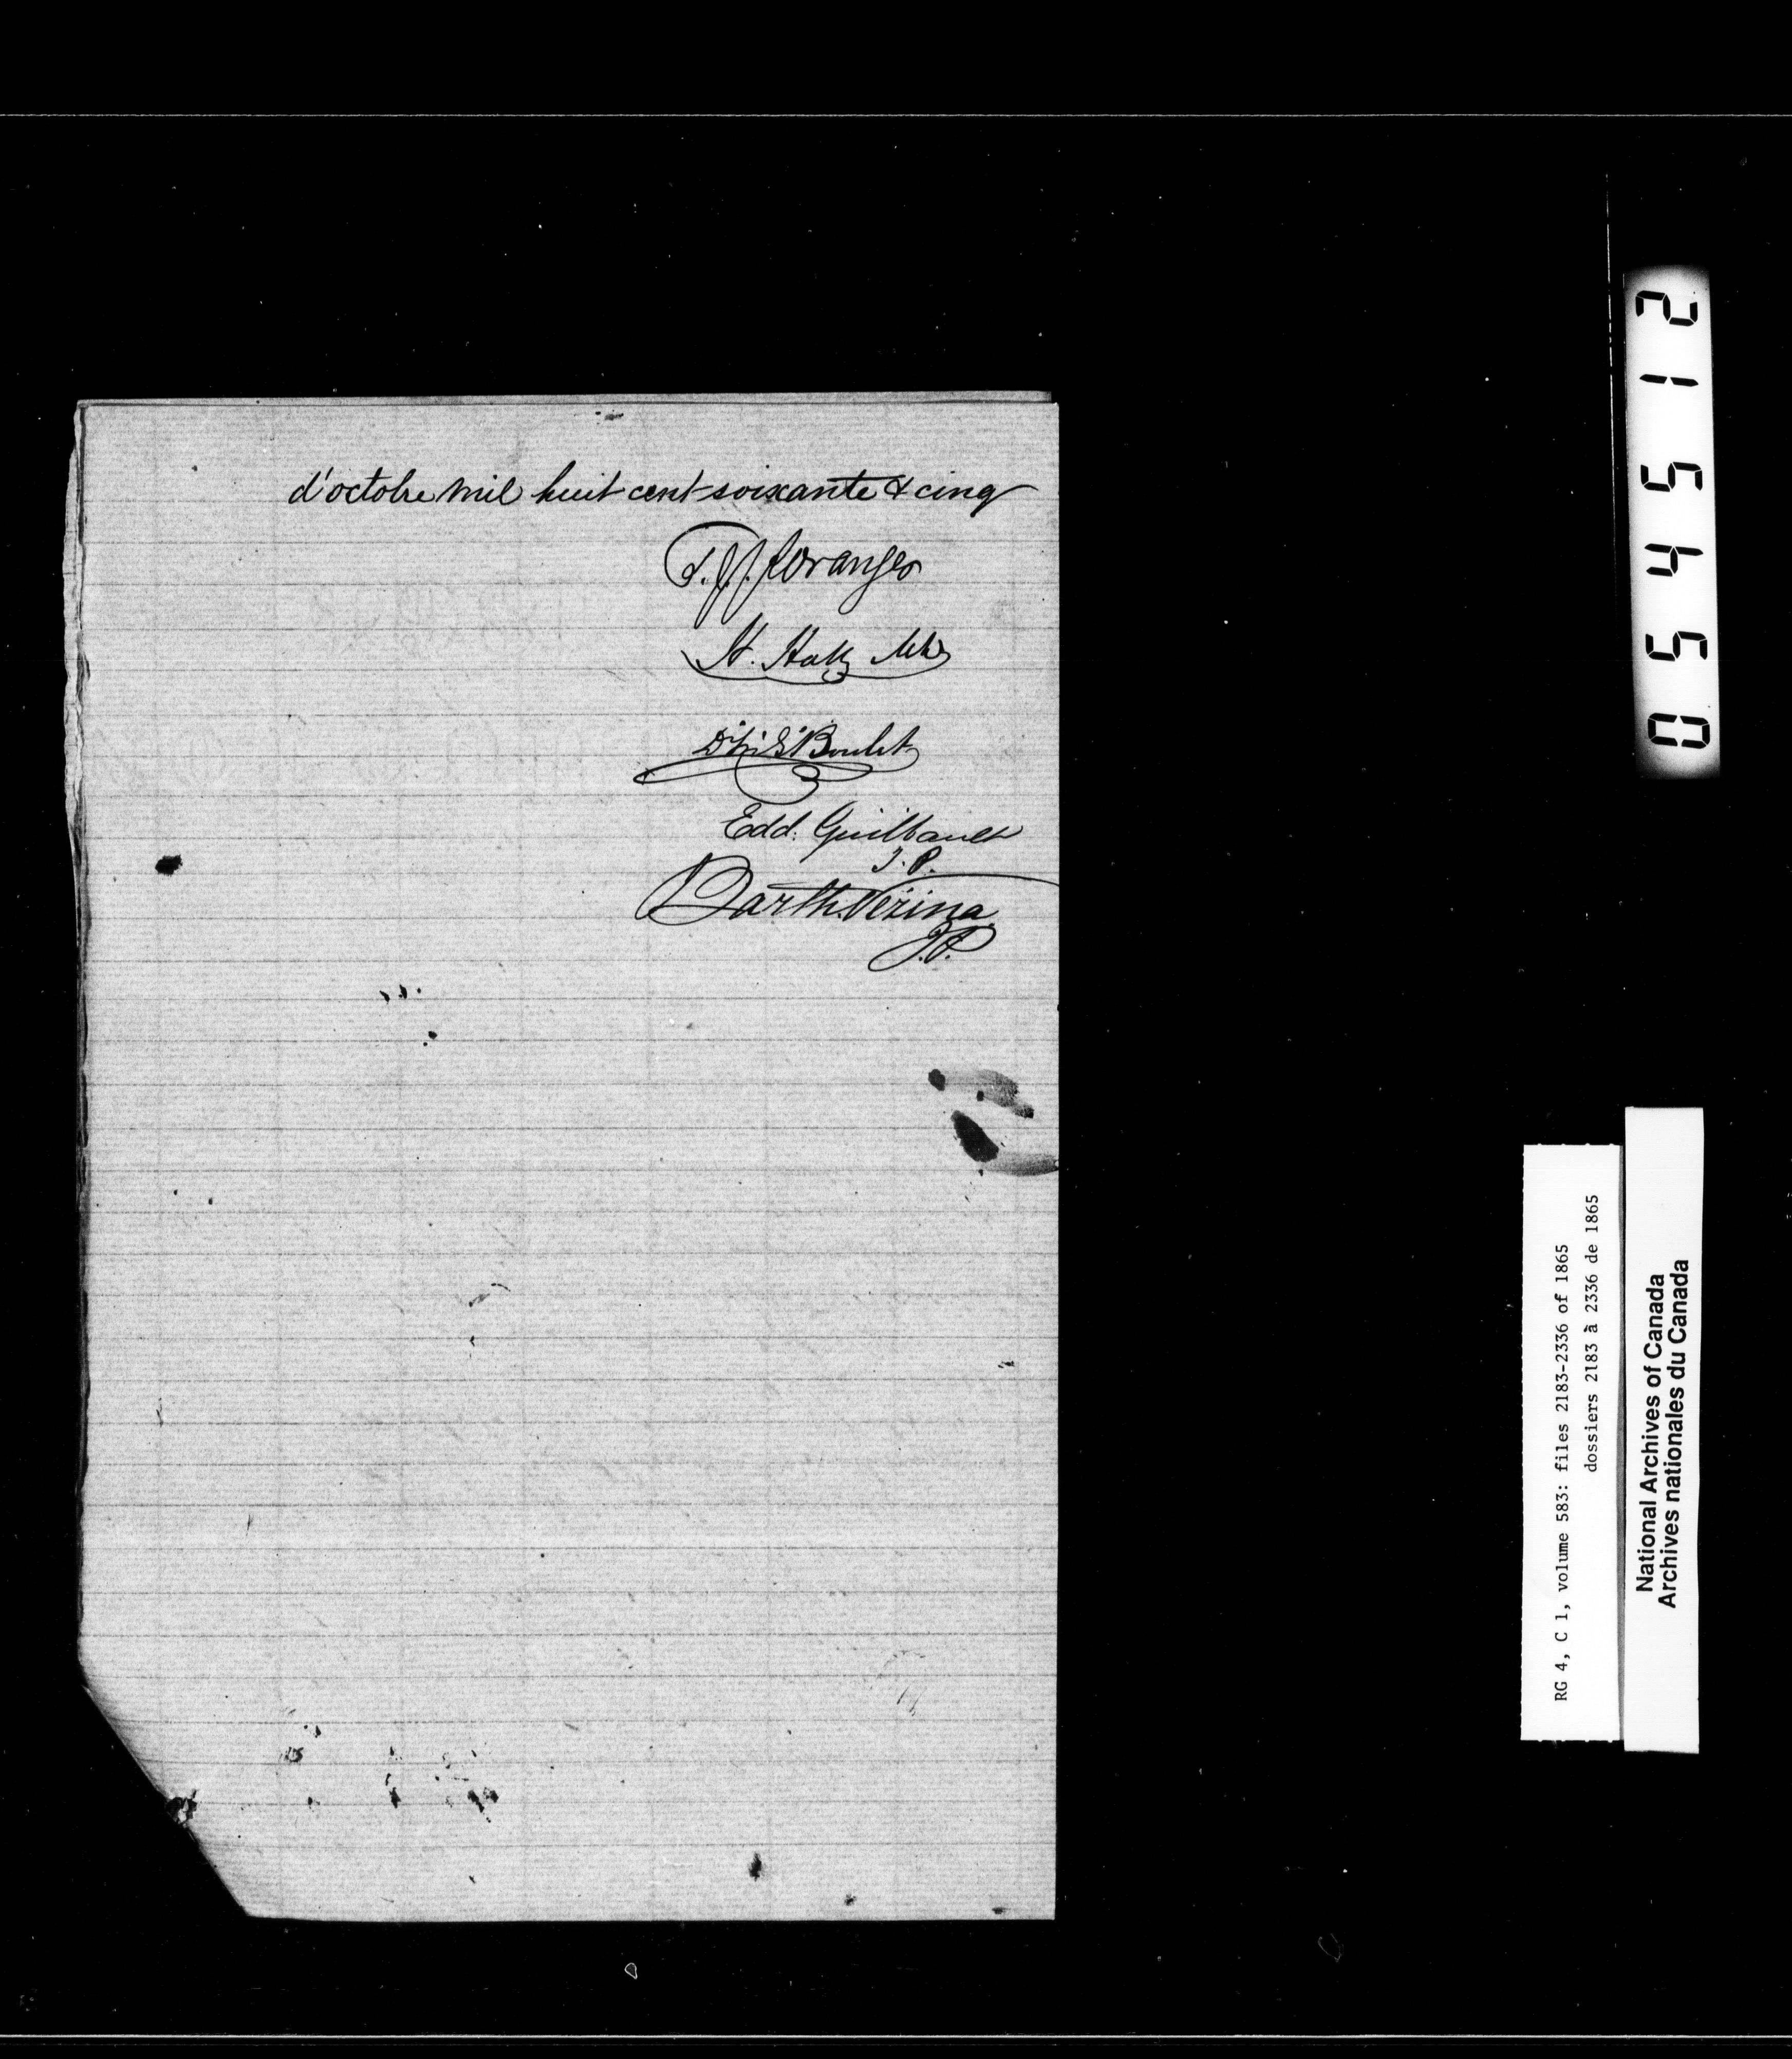 d'octobre mil huit cent soixante & cinq
T. J. J. Loranger
H.
Boulet
Edd. Guilbault
J. P.
Barth. Vézina
J.P.
054512
RG 4, C 1, volume 583: files 2183-2336 of 1865
dossiers 2183 à 2336 de 1865
National Archives of Canada
Archives nationales du Canada